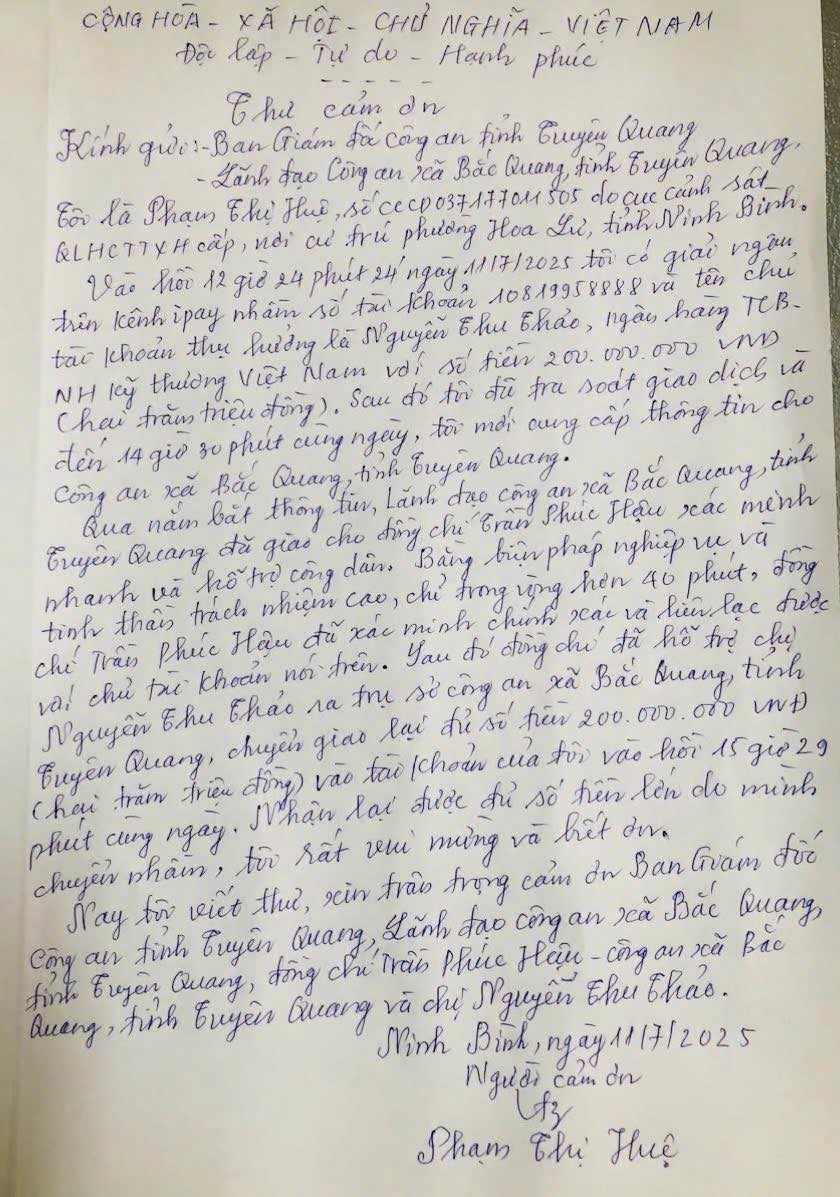 CỘNG HÒA - XÃ HỘI - CHỦ NGHĨA - VIỆT NAM
Độc lập - Tự do - Hạnh phúc
Thư cảm ơn
Kính gửi: - Ban Giám đốc công an tỉnh Tuyên Quang
- Lãnh đạo Công an xã Bắc Quang, tỉnh Tuyên Quang.
Tôi là Phạm Thị Huệ, số CCCD 037177011505 do cục cảnh sát
QLHCTTXH cấp, nơi cư trú phường Hoa Lư, tỉnh Ninh Bình.
Vào hồi 12 giờ 24 phút 24' ngày 11/7/2025 tôi có giải ngân
trên kênh ipay nhầm số tài khoản 10819958888 và tên chủ
tài khoản thụ hưởng là Nguyễn Thu Thảo, ngân hàng TCB-
NH Kỹ thương Việt Nam với số tiền 200.000.000 VNĐ
(hai trăm triệu đồng). Sau đó tôi đã tra soát giao dịch và
đến 14 giờ 30 phút cùng ngày, tôi mới cung cấp thông tin cho
Công an xã Bắc Quang, tỉnh Tuyên Quang.
Qua nắm bắt thông tin, Lãnh đạo công an xã Bắc Quang, tỉnh
Tuyên Quang đã giao cho đồng chí Trần Phúc Hậu xác minh
nhanh và hỗ trợ công dân. Bằng biện pháp nghiệp vụ và
tinh thần trách nhiệm cao, chỉ trong vòng hơn 40 phút, đồng
chí Trần Phúc Hậu đã xác minh chính xác và liên lạc được
với chủ tài khoản nói trên. Sau đó đồng chí đã hỗ trợ chị
Nguyễn Thu Thảo ra trụ sở công an xã Bắc Quang, tỉnh
Tuyên Quang, chuyển giao lại đủ số tiền 200.000.000 VNĐ
(hai trăm triệu đồng) vào tài khoản của tôi vào hồi 15 giờ 29
phút cùng ngày. Nhận lại được đủ số tiền lớn do mình
chuyển nhầm, tôi rất vui mừng và biết ơn.
Nay tôi viết thư, xin trân trọng cảm ơn Ban Giám đốc
Công an tỉnh Tuyên Quang, Lãnh đạo công an xã Bắc Quang,
tỉnh Tuyên Quang, đồng chí Trần Phúc Hậu - công an xã Bắc
Quang, tỉnh Tuyên Quang và chị Nguyễn Thu Thảo.
Ninh Bình, ngày 11/7/2025
Người cảm ơn
Phạm Thị Huệ